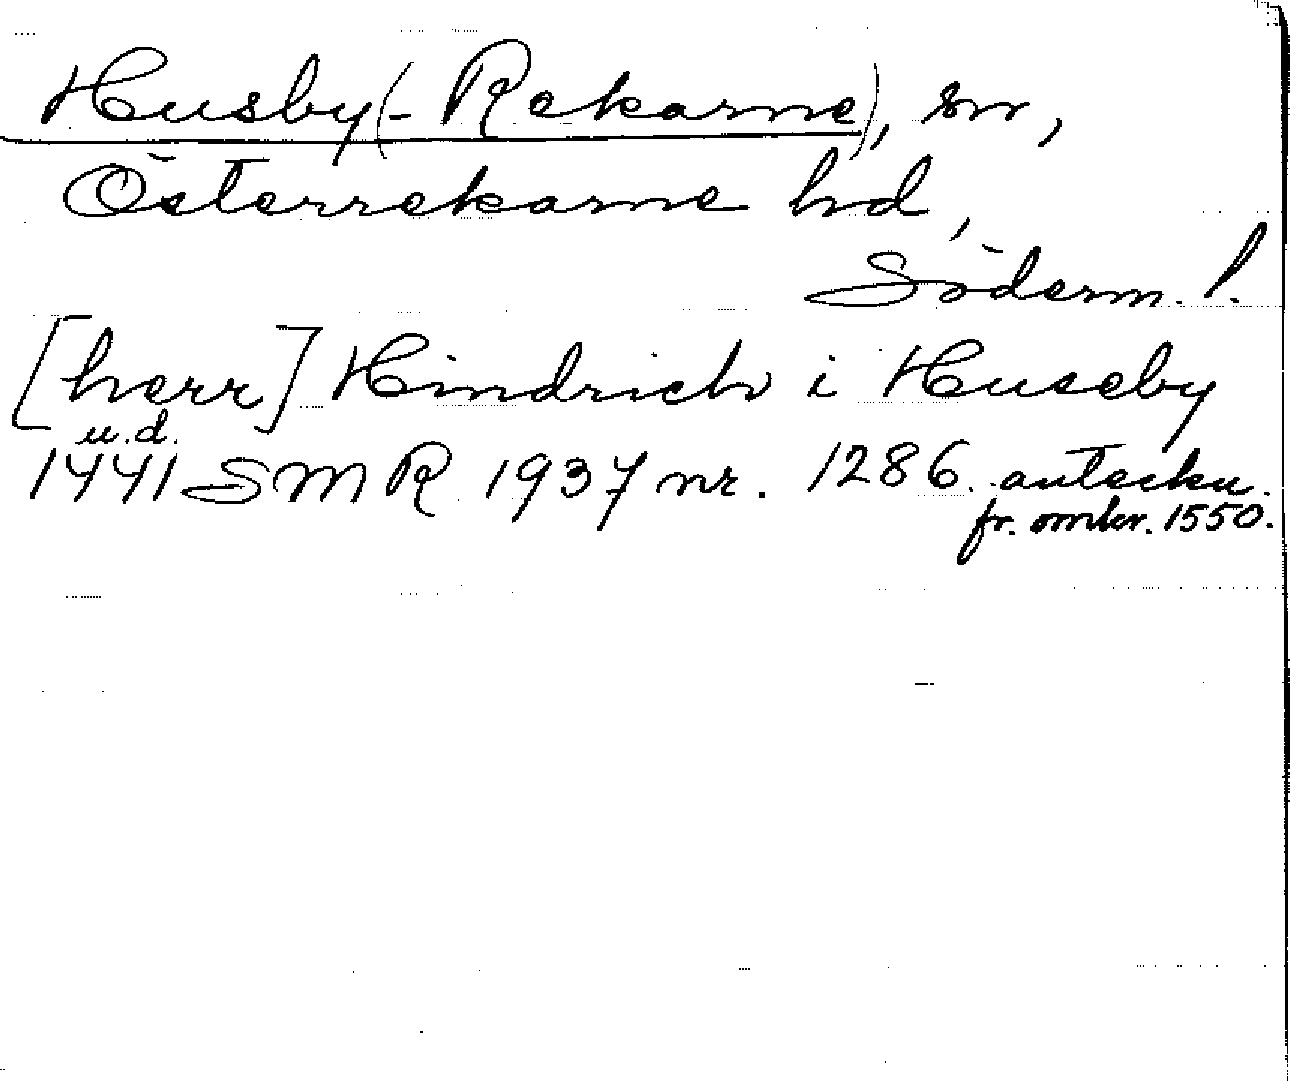 Husby(-Rekarne), sn,
Österrekarne hd,
Söderm. l.
[herr] Hindrich i Huseby
u.d.
1441 SMR 1937 nr. 1286. anteckn.
fr. omkr. 1550.